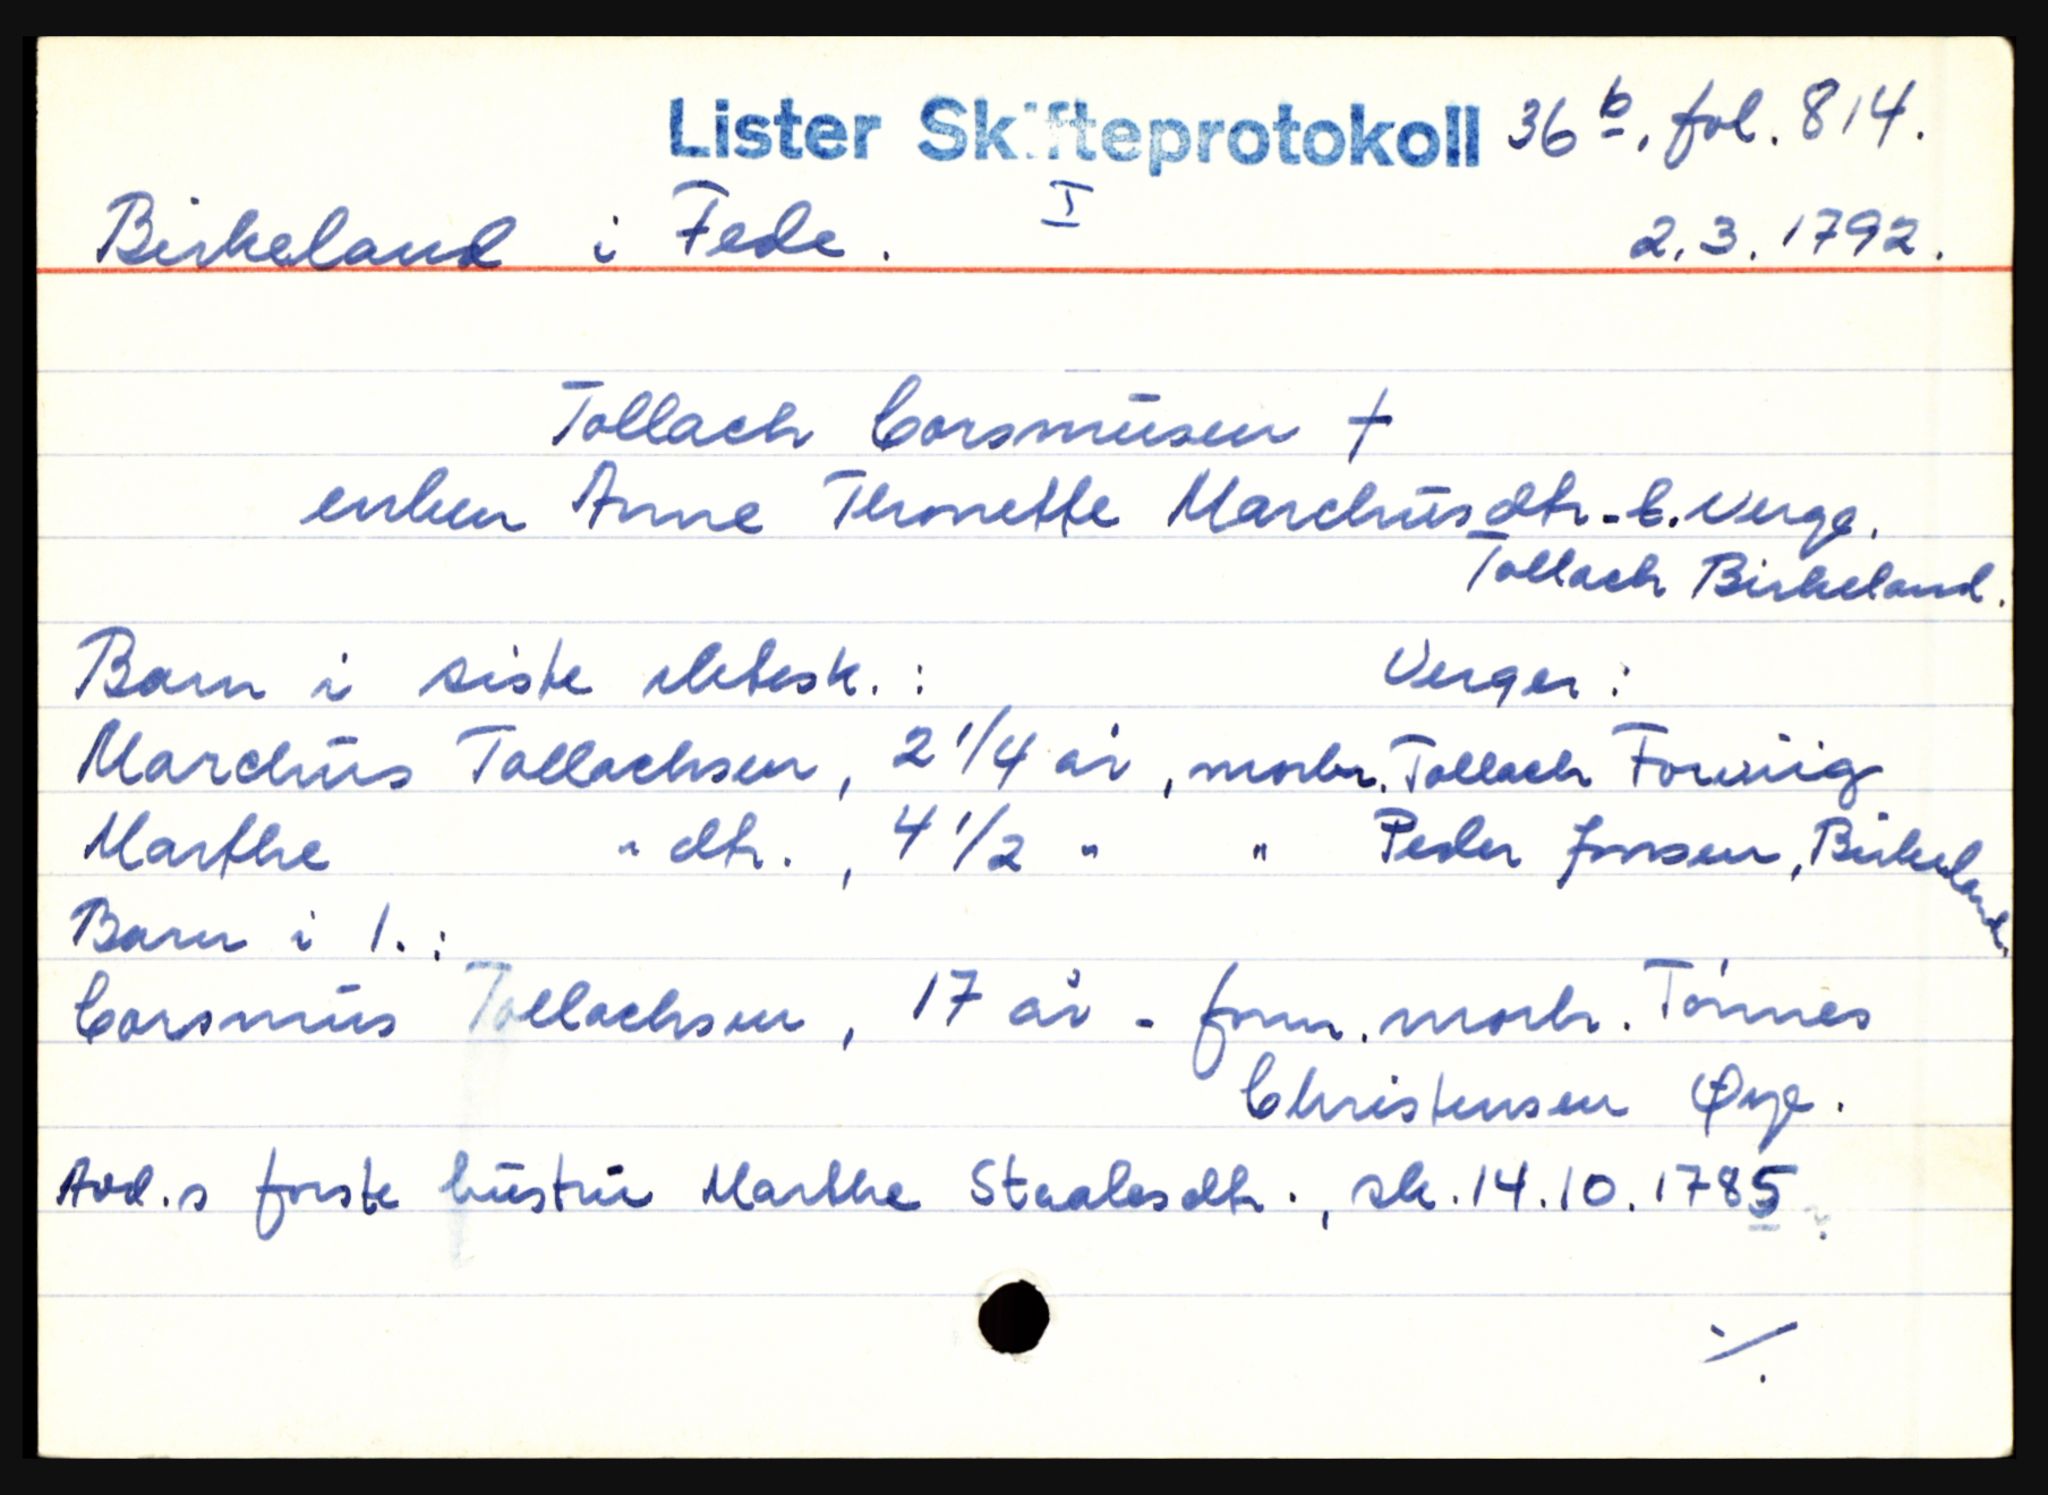 Lister Skifteprotokoll 36 b, fol. 814.
I
Birkeland i Fede. 2.3.1792.
Tollach Corsmusen †
enken Anne Thonette Marchusdtr. - l. verge,
Tollach Birkeland.
Barn i siste ektesk.: Verger:
Marchus Tollachsen, 2 1/4 år, morbr. Tollach Fowig
Marthe " dtr., 4 1/2 " " Peder Jonsen, Birkeland.
Barn i 1.:
Corsmus Tollachsen, 17 år - form. morbr. Tónnes
Christensen Øye.
Avd.s første hustru Marthe Staalesdtr., sk. 14.10.1785
./.